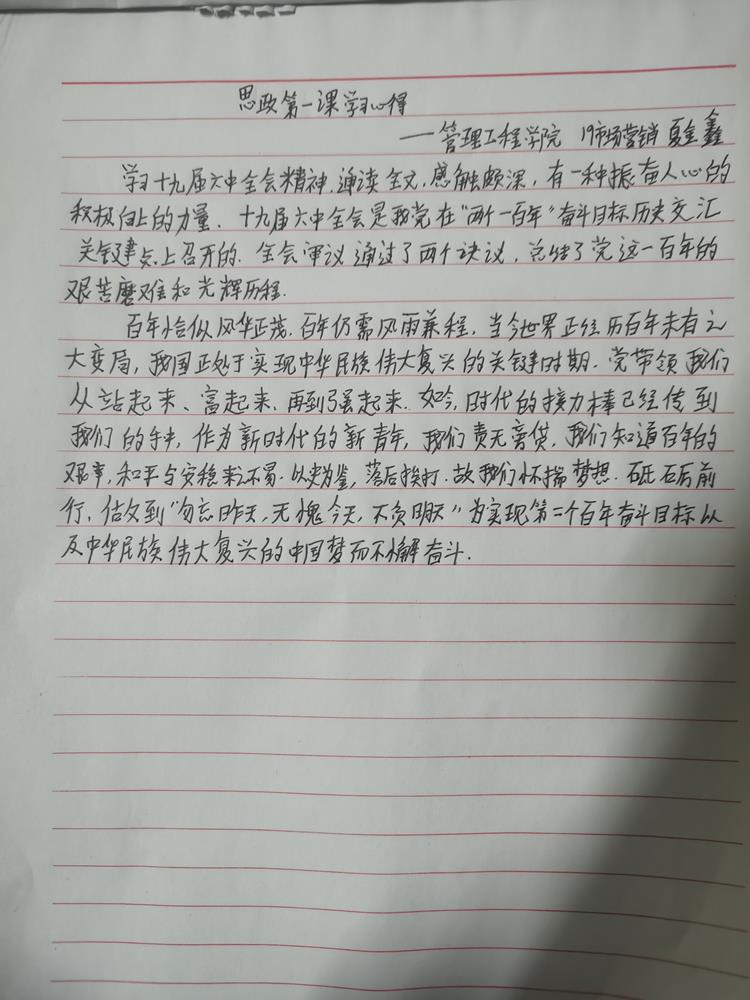 思政第一课学习心得
——管理工程学院 19市场营销 夏鑫
学习十九届六中全会精神,通读全文,感触颇深,有一种振奋人心的
积极向上的力量.十九届六中全会是我党在"两个一百年"奋斗目标历史交汇
关键点上召开的.全会审议通过了两个决议,总结了党这一百年的
艰苦磨难和光辉历程.
百年恰似风华正茂.百年仍需风雨兼程,当今世界正经历百年未有之
大变局,我国正处于实现中华民族伟大复兴的关键时期.党带领我们
从站起来、富起来、再到强起来.如今,时代的接力棒已经传到
我们的手中,作为新时代的新青年,我们责无旁贷.我们知道百年的
艰辛,和平与安稳来之不易.以史为鉴,落后挨打.故我们怀揣梦想.砥砺前
行,做到"勿忘昨天,无愧今天,不负明天"为实现第二个百年奋斗目标以
及中华民族伟大复兴的中国梦而不懈奋斗.